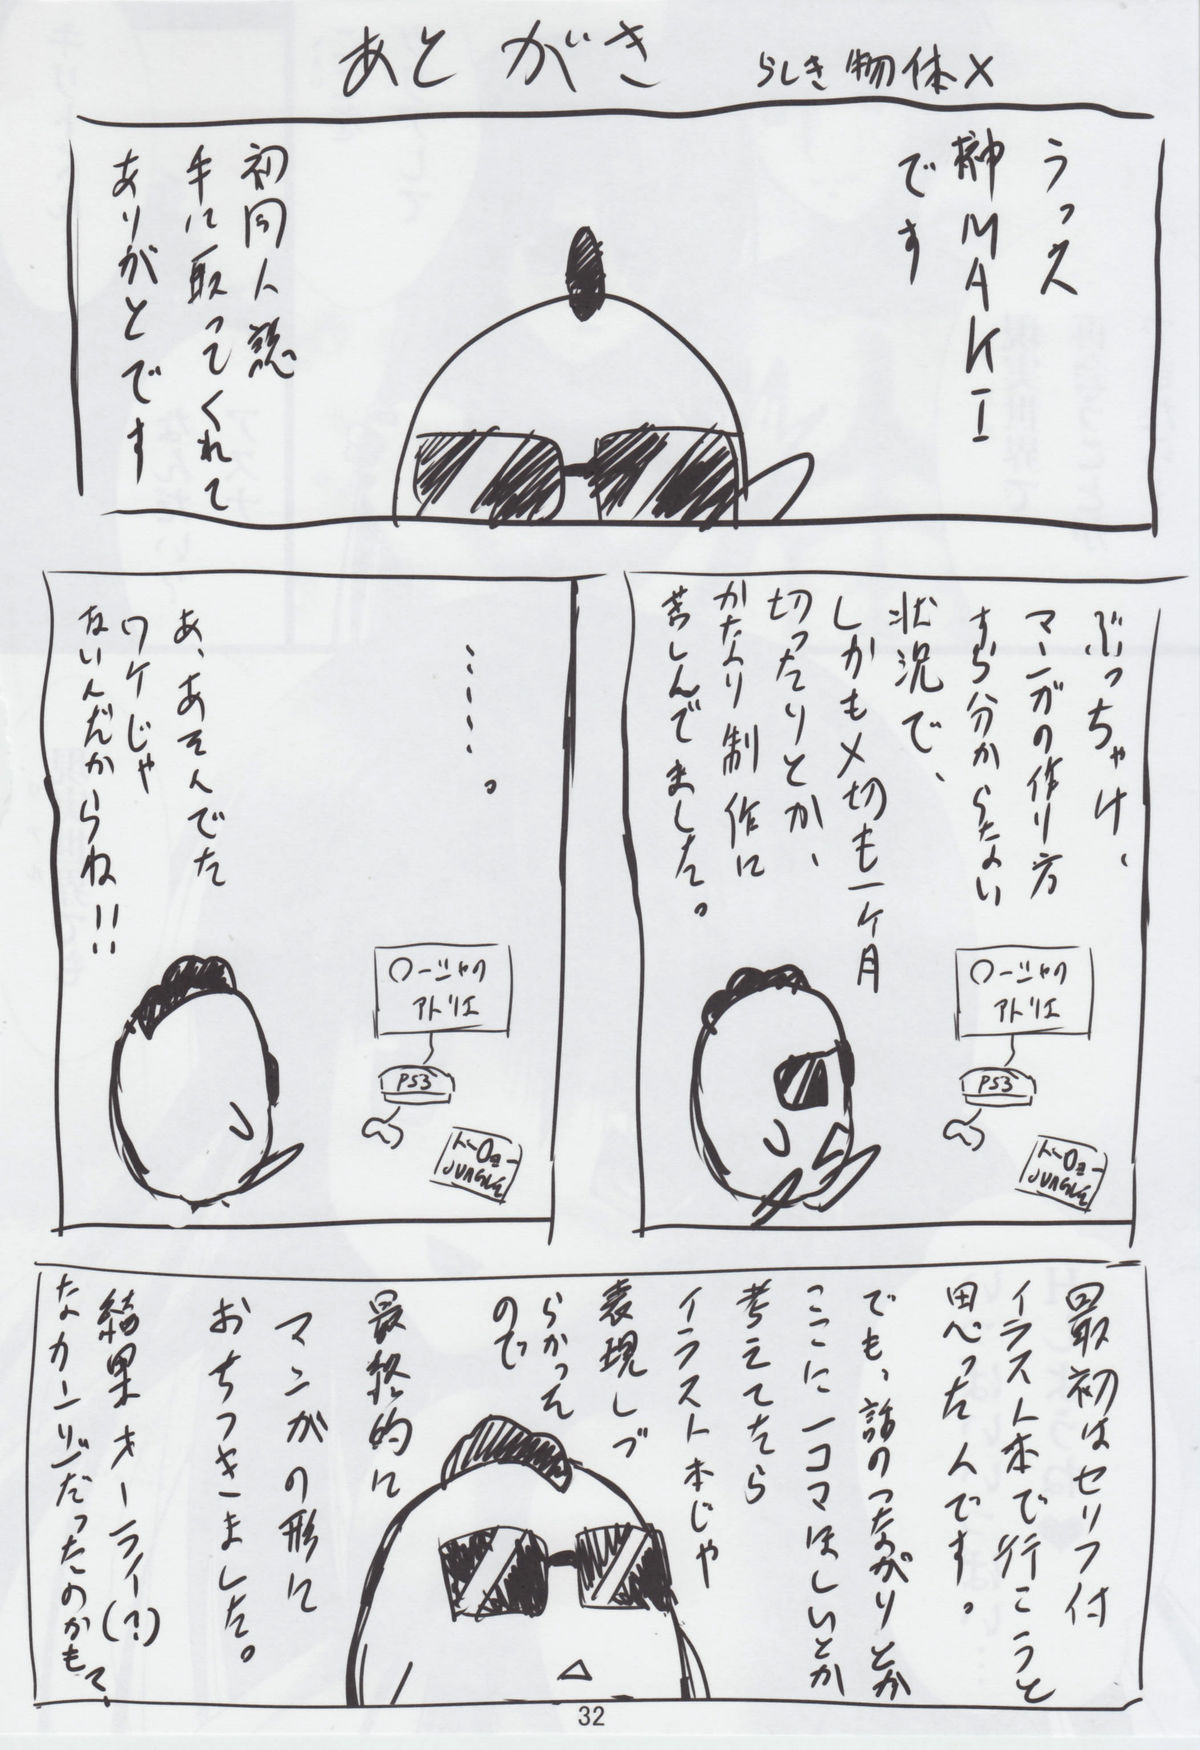 あとがき
らしき物体X
うっス
榊MAKI
です
初同人誌
手に取ってくれて
ありがとです
ぶっちゃけ、
マンガの作り方
すら分からない
状況で、
しかも〆切も一ケ月
切ったりとか、
かなり制作に
苦しんでました。
〇ーシャの
アトリエ
PS3
トーOョー
JUNGLE
‥‥‥‥。
あ、あそんでた
ワケじゃ
ないんだからね!!
〇ーシャの
アトリエ
PS3
トーOョー
JUNGLE
最初はセリフ付
イラスト本で行こうと
思ったんです。
でも、話のつながりとか
ここに一コマほしいとか
考えてたら
イラスト本じゃ
表現しづ
らかった
ので
最終的に
マンガの形に
おちつきました。
結果オーライ(?)
なカンジだったのかもて、
32